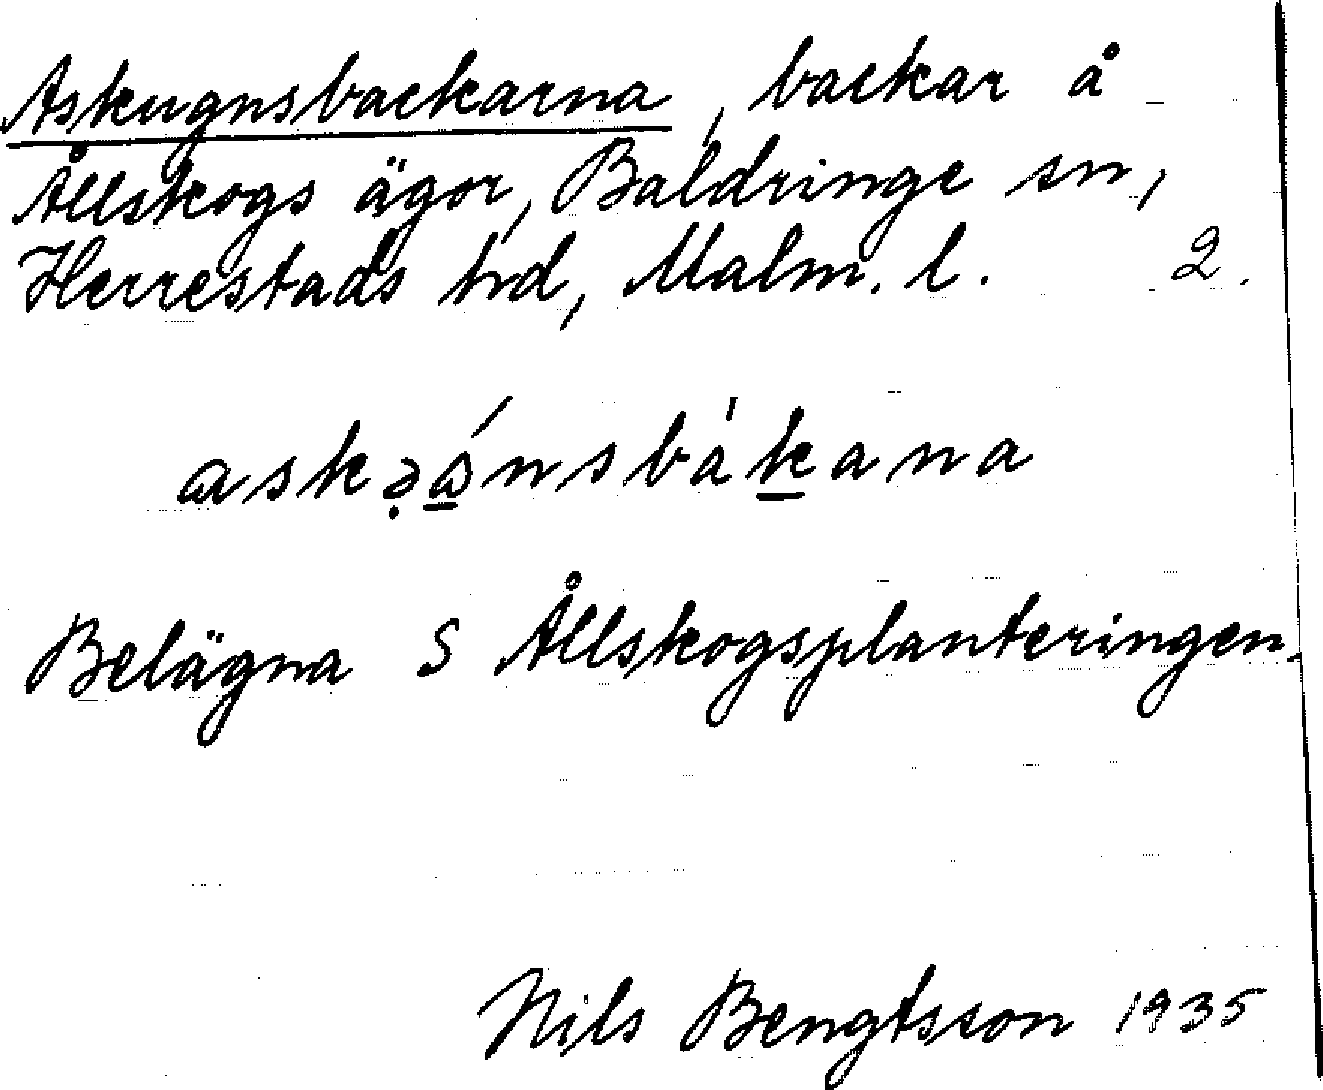 Askugnsbackarna, backar å
Ållskogs ägor, Baldringe sn,
Herrestads hd, Malm. l. 2.
Belägna S Ållskogsplanteringen.
Nils Bengtsson 1935